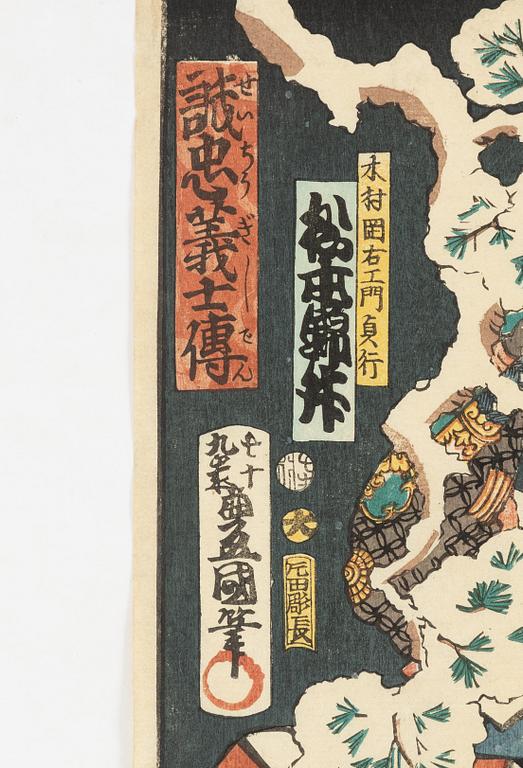 木村岡右エ門貞行
松本錦升
せいちうぎしでん
誠忠義士傳
大
片田彫長
七十
九歳
豊國筆